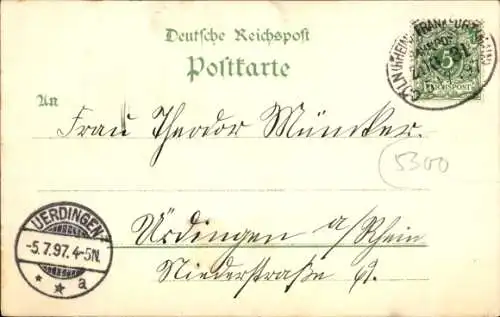 Deutsche Reichspost
Postkarte
An
Frau Theodor Müncker.
5300
Uerdingen a/Rhein
Niederstraße
UERDINGEN
-5.7.97. 4-5N.
* * a
5
REICHSPOST
CÖLN (RHEIN) FRANKFURT
BAHNPOST
ZUG 31